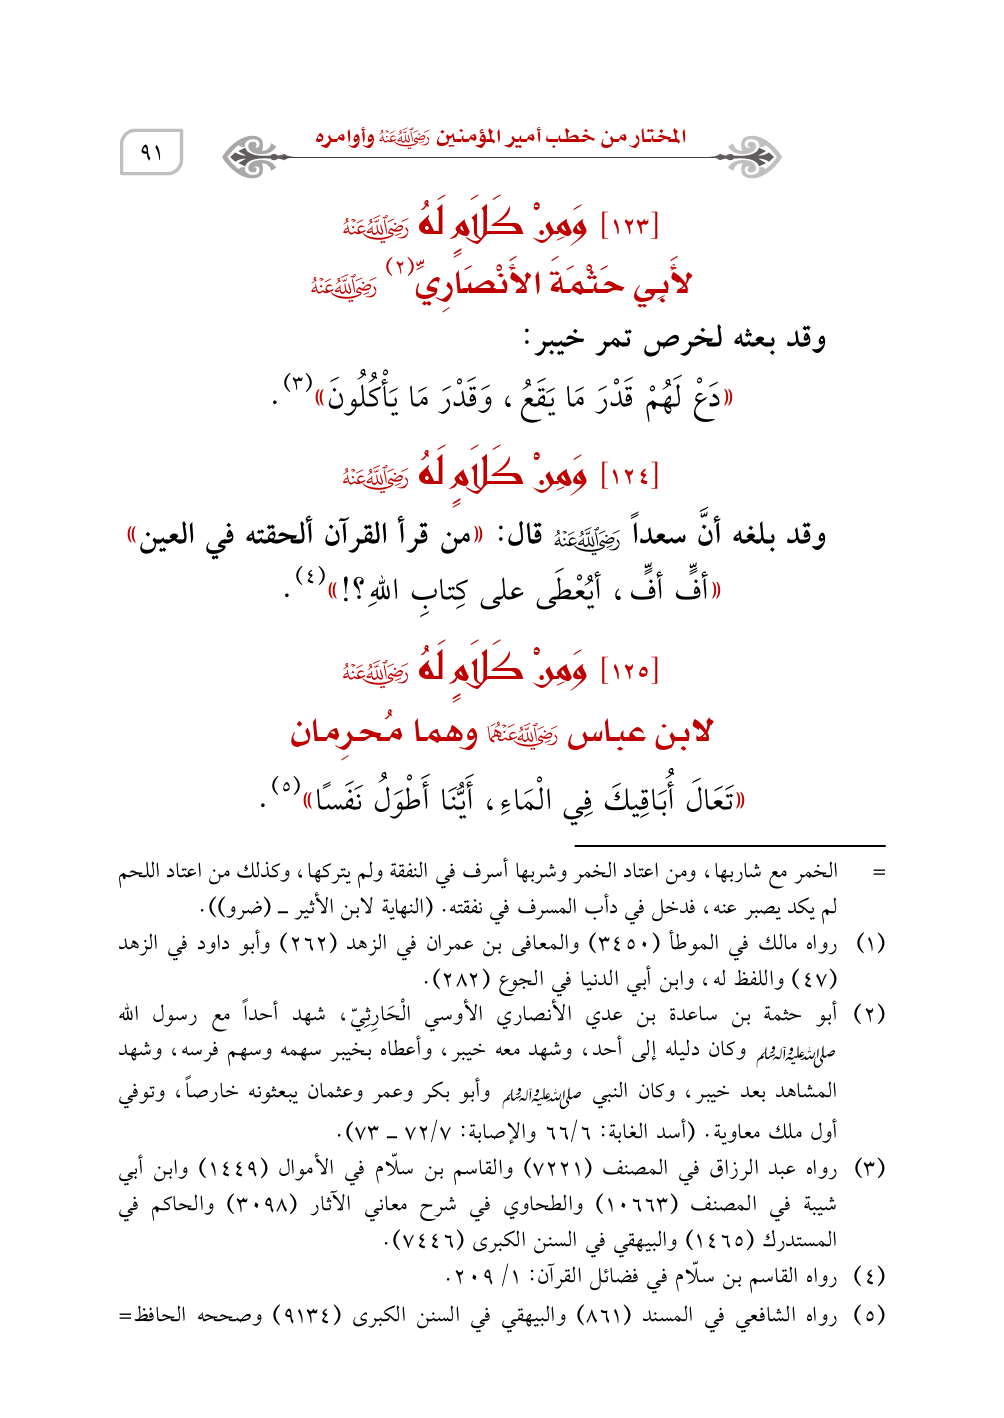 المختار من خطب أمير المؤمنين رَضِيَ اللَّهُ عَنْهُ وأوامره
٩١
[١٢٣] وَمِنْ كَلَامٍ لَهُ رَضِيَ اللَّهُ عَنْهُ
لأَبِي حَثْمَةَ الأَنْصَارِيِّ(٢) رَضِيَ اللَّهُ عَنْهُ
وقد بعثه لخرص تمر خيبر:
«دَعْ لَهُمْ قَدْرَ مَا يَقَعُ، وَقَدْرَ مَا يَأْكُلُونَ»(٣).
[١٢٤] وَمِنْ كَلَامٍ لَهُ رَضِيَ اللَّهُ عَنْهُ
وقد بلغه أنَّ سعداً رَضِيَ اللَّهُ عَنْهُ قال: «من قرأ القرآن ألحقته في العين»
«أفٍّ أفٍّ، أيُعْطَى على كِتابِ اللهِ؟!»(٤).
[١٢٥] وَمِنْ كَلَامٍ لَهُ رَضِيَ اللَّهُ عَنْهُ
لابن عباس رَضِيَ اللَّهُ عَنْهُمَا وهما مُحرِمان
«تَعَالَ أُبَاقِيكَ فِي الْمَاءِ، أَيُّنَا أَطْوَلُ نَفَسًا»(٥).
= الخمر مع شاربها، ومن اعتاد الخمر وشربها أسرف في النفقة ولم يتركها، وكذلك من اعتاد اللحم
لم يكد يصبر عنه، فدخل في دأب المسرف في نفقته. (النهاية لابن الأثير ـ (ضرو)).
(١) رواه مالك في الموطأ (٣٤٥٠) والمعافى بن عمران في الزهد (٢٦٢) وأبو داود في الزهد
(٤٧) واللفظ له، وابن أبي الدنيا في الجوع (٢٨٢).
(٢) أبو حثمة بن ساعدة بن عدي الأنصاري الأوسي الْحَارِثِيّ، شهد أحداً مع رسول الله
صلى الله عليه وآله وسلم وكان دليله إلى أحد، وشهد معه خيبر، وأعطاه بخيبر سهمه وسهم فرسه، وشهد
المشاهد بعد خيبر، وكان النبي صلى الله عليه وآله وسلم وأبو بكر وعمر وعثمان يبعثونه خارصاً، وتوفي
أول ملك معاوية. (أسد الغابة: ٦٦/٦ والإصابة: ٧٢/٧ ـ ٧٣).
(٣) رواه عبد الرزاق في المصنف (٧٢٢١) والقاسم بن سلّام في الأموال (١٤٤٩) وابن أبي
شيبة في المصنف (١٠٦٦٣) والطحاوي في شرح معاني الآثار (٣٠٩٨) والحاكم في
المستدرك (١٤٦٥) والبيهقي في السنن الكبرى (٧٤٤٦).
(٤) رواه القاسم بن سلّام في فضائل القرآن: ١/ ٢٠٩.
(٥) رواه الشافعي في المسند (٨٦١) والبيهقي في السنن الكبرى (٩١٣٤) وصححه الحافظ=